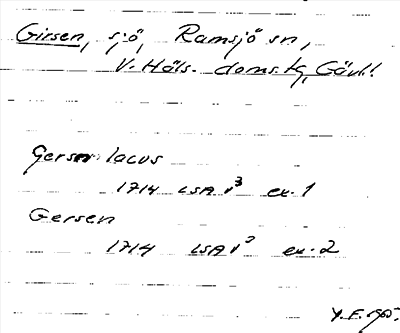 Girsen, sjö, Ramsjö sn,
V. Häls. doms. tg, Gävl.
Gersen lacus
1714 LSA v³ ex. 1
Gersen
1714 LSA v³ ex. 2
Y. F. 1965.